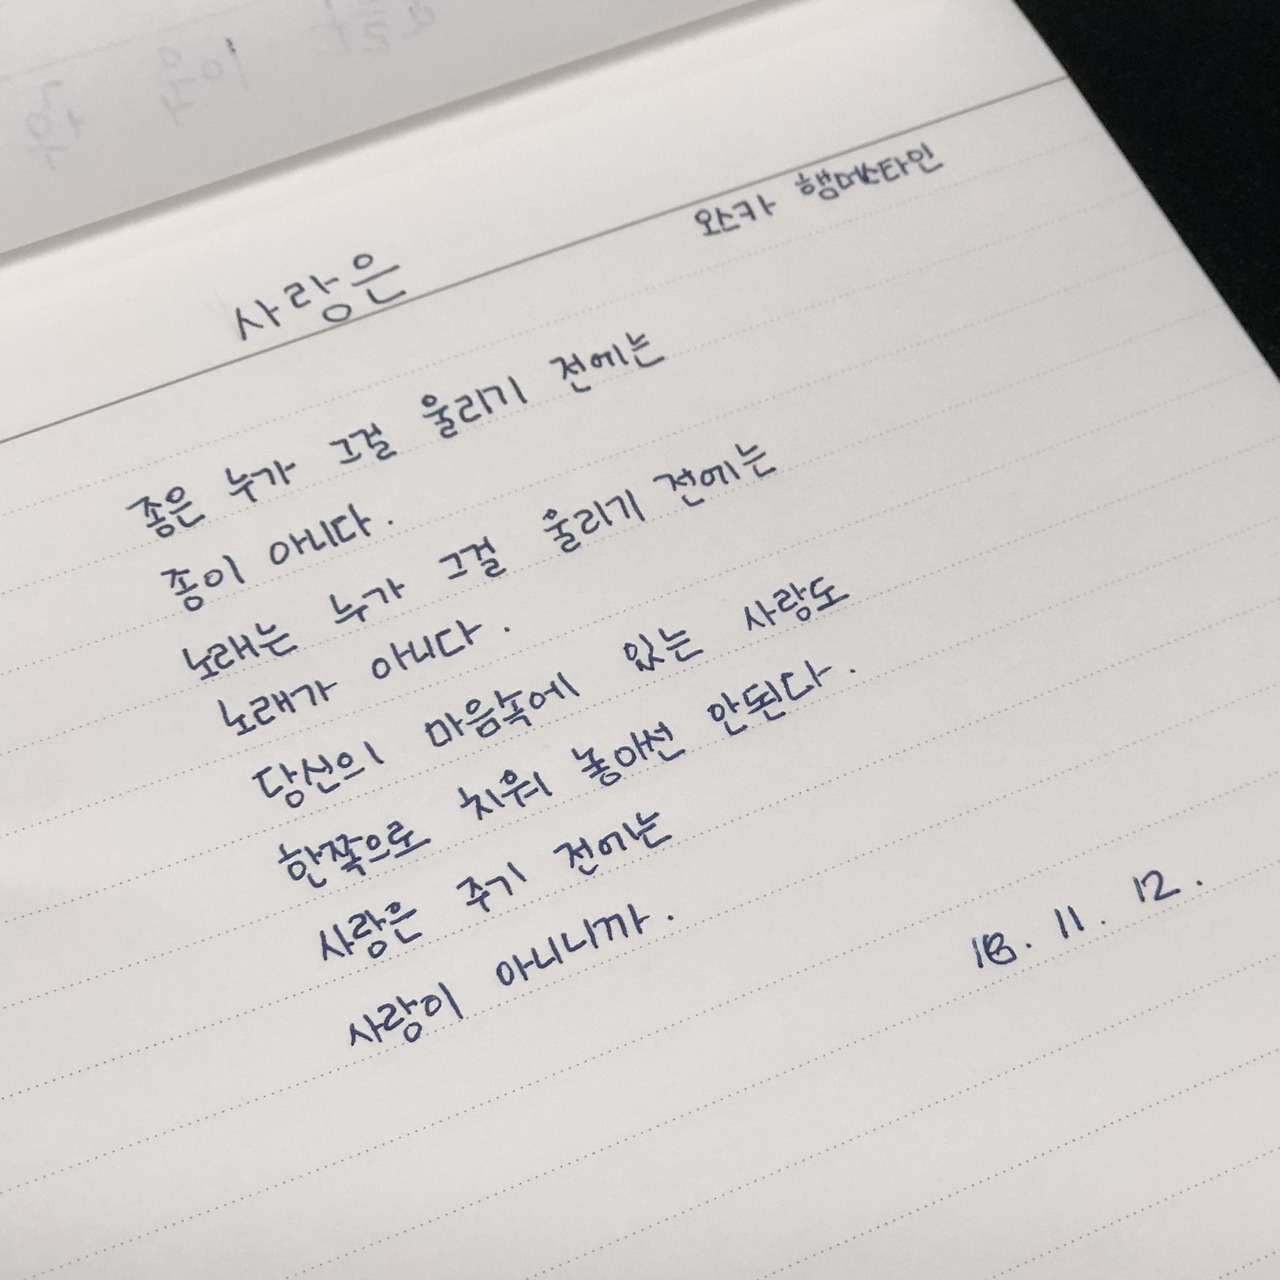 사랑은
오스카 햄머스타인
종은 누가 그걸 울리기 전에는
종이 아니다.
노래는 누가 그걸 울리기 전에는
노래가 아니다.
당신의 마음속에 있는 사랑도
한쪽으로 치워 놓아선 안된다.
사랑은 주기 전에는
사랑이 아니니까.
18. 11. 12.